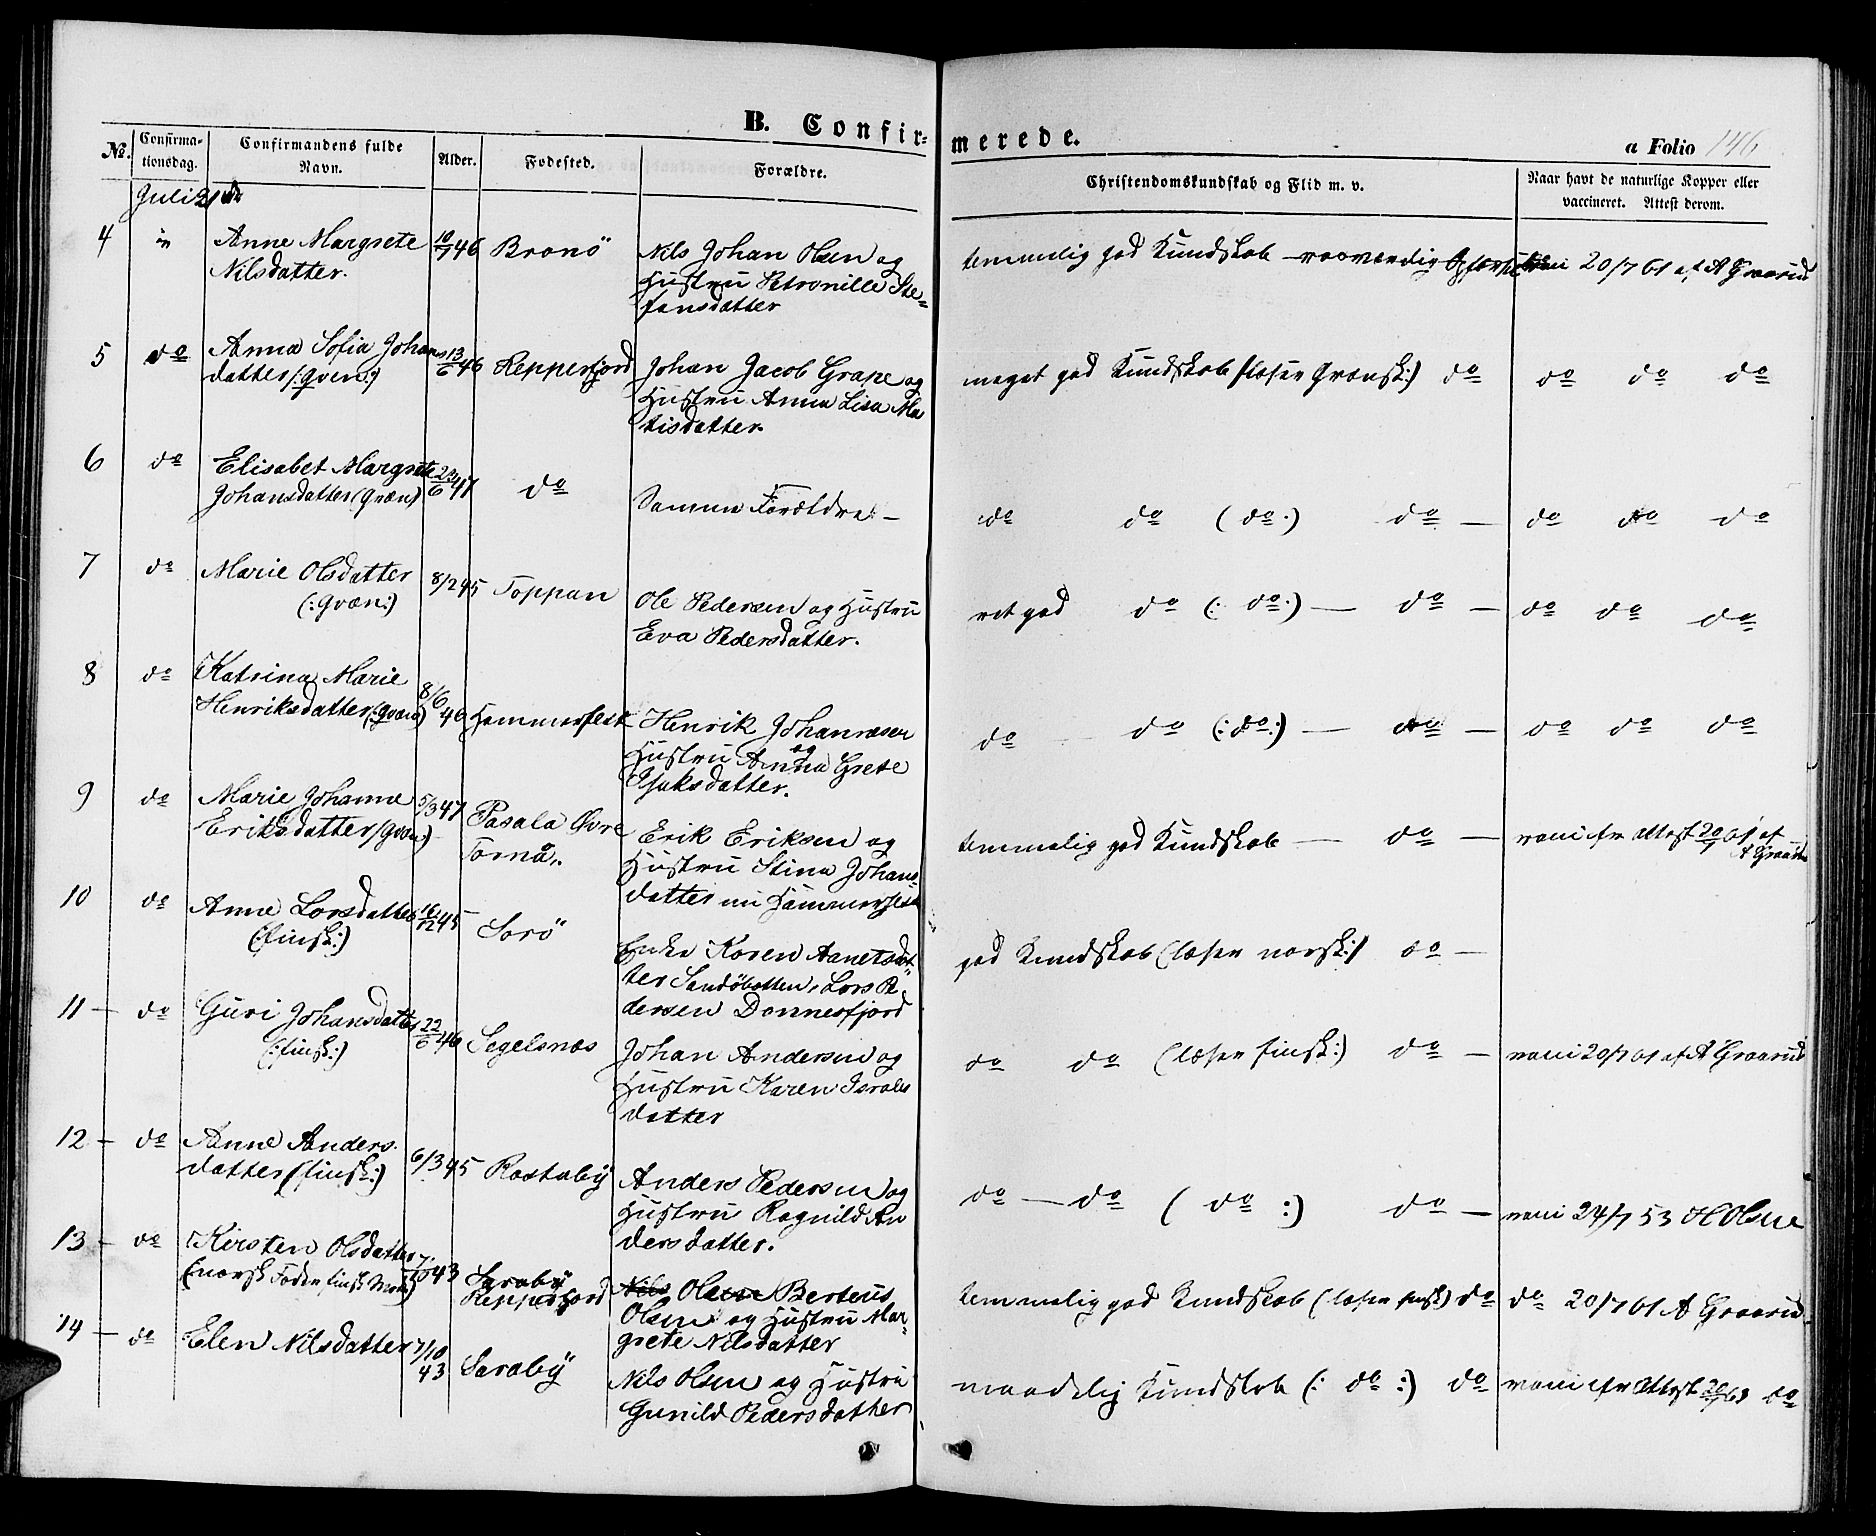 B. Confir-
merede.
a Folio 146
No.
Confirma-
tionsdag.
Confirmandens fulde
Navn.
Alder.
Fødested.
Forældre.
Christendomskundskab og Flid m. v.
Naar havt de naturlige Kopper eller
vaccineret. Attest derom.
Juli 21de
4
Anne Margrete
Nilsdatter.
10/7 46
Bronö
Nils Johan Olsen og
Hustru Petronille Ste-
fansdatter
temmelig god Kundskab
20/7 61 af A Graarud
5 do
Anna Sofia Johans
datter (:qven:)
13/6 46
Repperfjord
Johan Jacob Grape og
Hustru Anna Lisa Ma
tisdatter.
meget god Kundskab (læser Qvænsk:) do
do do do
6 do
Elisabet Margrete
Johansdatter (qvæn)
47
do
Samme Forældre. —
do do (do:) do — do do do
7 do
Marie Olsdatter
(:qvæn:)
8/2 45
Toppan
Ole Pedersen og Hustru
Eva Pedersdatter.
ret god do (: do:) — do — do do do
8 do
Katrina Marie
Henriksdatter (:qvæn)
8/6 46
Hammerfest
Henrik Johannesen
og
Hustru Anna Grete
Isaksdatter.
do do (:do:) — do — do do do
9 do
Marie Johanne
Eriksdatter (qvæn)
5/3 47
Pasala Øvre
Tornå.
Erik Eriksen og
Hustru Stina Johans-
datter nu Hammerfest
temmelig god Kundskab — do —
vacc. efter Attest 20/7 61 af
A Graarud
10 do
Anne Larsdatter
(:finsk:)
16/12 45
Sorö
Enke Karen Aanetsdat-
ter Sandöbotten, Lars Pe-
dersen Donnesfjord
god Kundskab (læser norsk:) do —
11 — do
Guri Johansdatter
(:finsk:)
22/6 46
Segelsnæs
Johan Andersen og
Hustru Karen Israls
datter
do do (læser finsk:) do —
vacc 20/7 61 af A Graarud
12 — do
Anne Anders-
datter (finsk:)
6/3 45
Rastaby
Anders Pedersen og
Hustru Ragnild An
dersdatter.
do — do ( do :) do —
vacc 24/7 53 H Olsen
13 — do
Kirsten Olsdatter
(norsk Fader finsk Moder)
7/10 43
Saraby
Repperfjord
Nils Olsen Berteus
Olsen og Hustru Mar-
grete Nilsdatter
temmelig god Kundskab (læser finsk) do
do 20/7 61 A Graarud
14 — do
Elen Nilsdatter
7/10
43
Saraby
Nils Olsen og Hustru
Gunild Pedersdatter
maadelig Kundskab (: do :) do
vacc efter Attest do